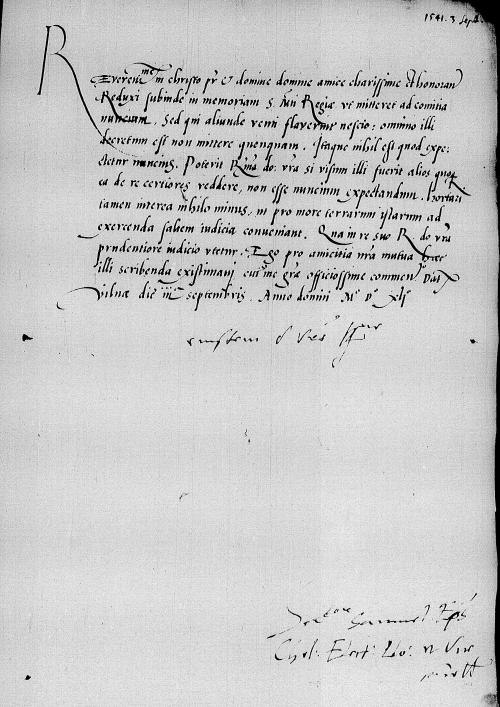 1541. 3. Septb.
Reverendme in christo pr et domine domine amice charissime et honoran
Reduxi subinde in memoriam S. Mti Regiae vt mitteret ad comitia
nuncium. Sed qui aliunde venti flaverint nescio: omnino illi
decretum est non mittere quenquam. Itaque nihil est quod expe:
ctetur nuncius. Poterit Rma do: vra si visum illi fuerit alios quoq
ea de re certiores reddere, non esse nuncium expectandum. Hortari
tamen interea nihilo minus, vt pro more terrarum istarum ad
exercenda saltem iudicia conveniant. Qua in re suo R do vra
prudentiore iudicio vtetur. Ego pro amicitia nra mutua haec
illi scribenda existimavi cui me grae officiosissime commen
Vilnae die iii Septembris. Anno domini Mo Do xlio
eiusdem d vre
Samuel Eps